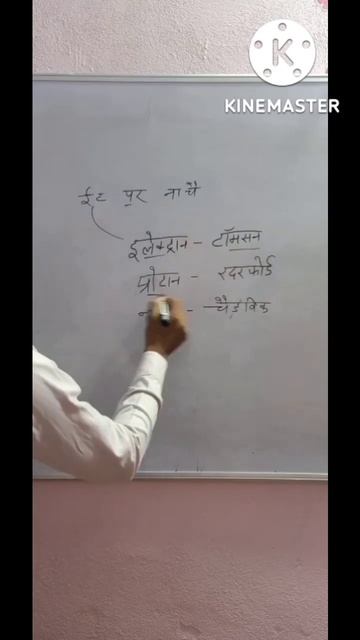 K
KINEMASTER
ईट पर नाचै
इलेक्ट्रान - टॉमसन
प्रोटान - रदरफोर्ड
न - चैडविक